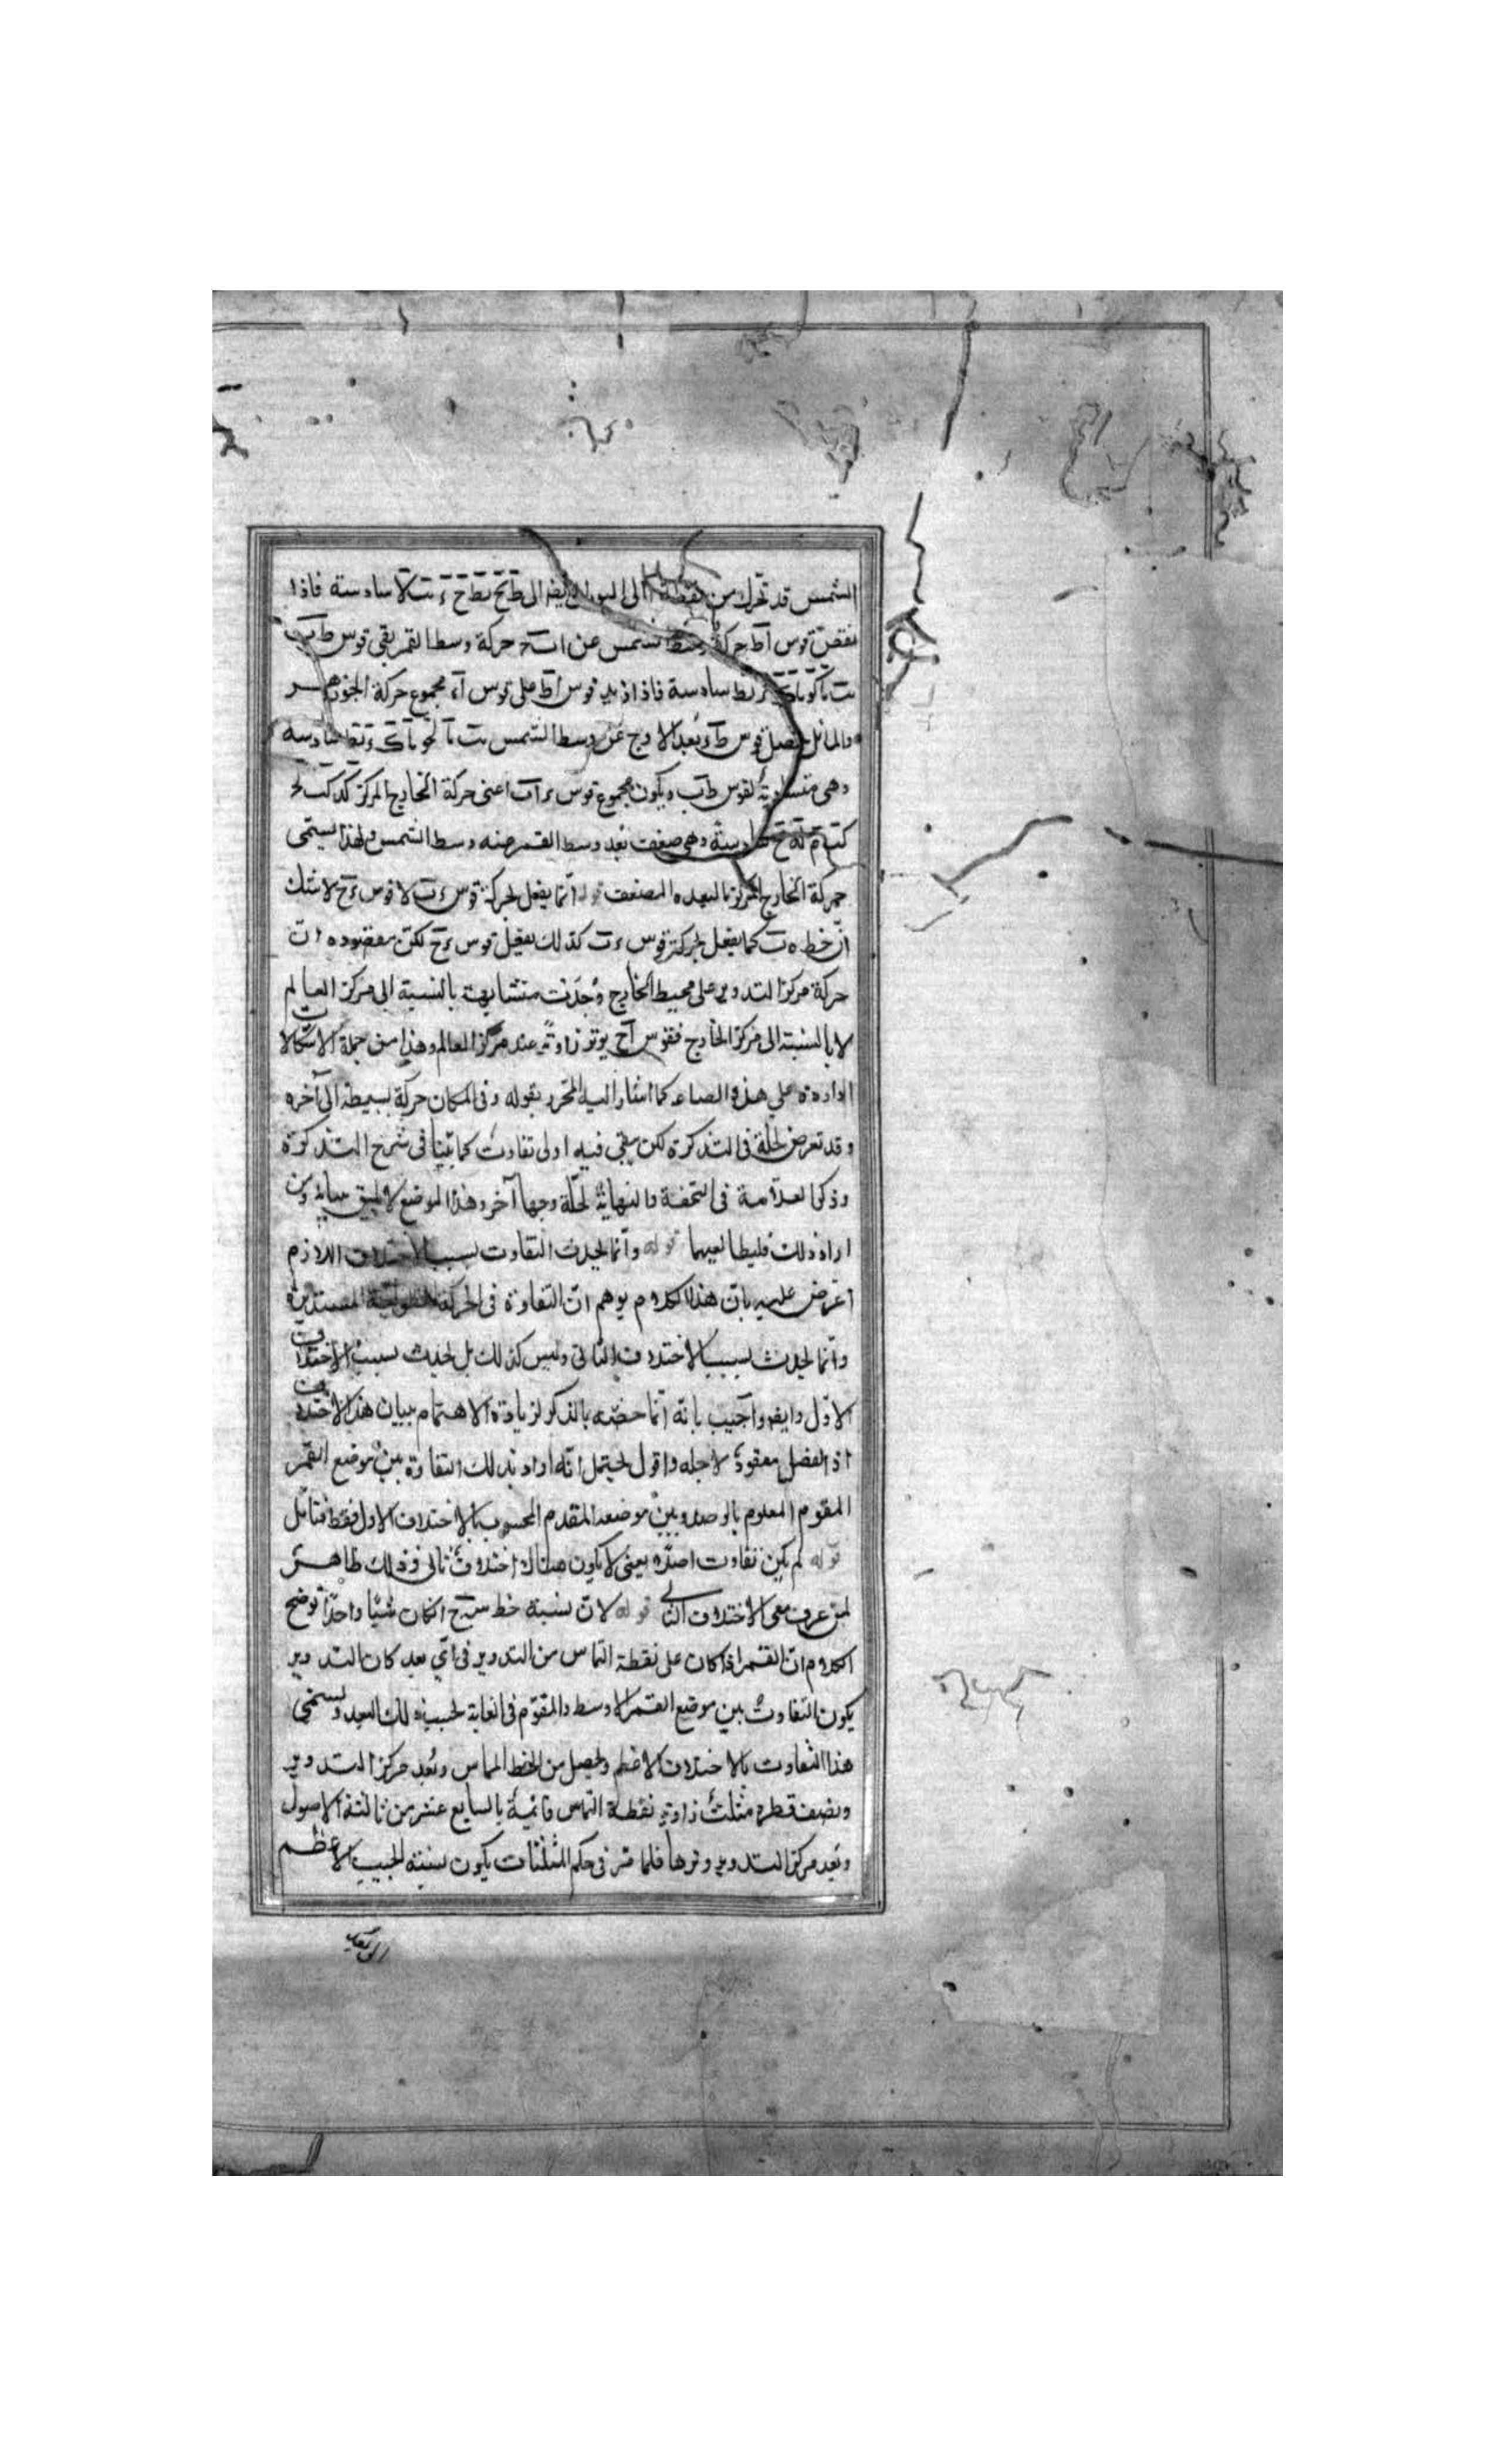 الشمس قد تحرك من نقطة الى التوالى ايضا الى سادسة فاذا
نقص قوس اط حركة وسط الشمس عن حركة وسط القمر بقى قوس ط ب
سادسة فاذا زيد قوس اط على قوس اء مجموع حركة الجوزهر
والمائل حصل قوس بعد الاوج عن وسط الشمس سادسه
وهى متساوية لقوس ط ب ويكون مجموع قوس اعنى حركة الخارج المركز
سادسة وهى ضعف بعد وسط القمر منه وسط الشمس ولهذا يسمى
حركة الخارج المركز بالبعد المضعف قوله انما يفعل بحركة قوس ء ب لا قوس ء ح لا شك
ان خط ه ب كما يفعل بحركته قوس ء ب كذلك يفعل قوس ء ح لكن مقصوده ان
حركة مركز التدوير على محيط الخارج وجدت متشابهة بالنسبة الى مركز العالم
لا بالنسبة الى مركز الخارج فقوس اح يوتر زاوية عند مركز العالم وهذا من جملة الاشكالات
الواردة على هذه الصناعة كما اشار اليه المحرر بقوله وفى المكان حركة بسيطة الى آخره
وقد تعرض لحله فى التذكرة لكن يبقى فيه ادنى تفاوت كما بينا فى شرح التذكرة
وذكر العلامة فى التحفة والنهاية لحله وجها آخر وهذا الموضع لا يليق ببيانه ومن
اراد ذلك فليطالعهما قوله وانما يحدث التفاوت بسبب الاختلاف اللازم
اعترض عليه بان هذا الكلام يوهم ان التفاوة فى الحركة المستديرة
وانما يحدث بسبب الاختلاف الثانى وليس كذلك بل يحدث بسبب الاختلاف
الاول وايضا واجيب بانه انما خصه بالذكر لزيادة الاهتمام ببيان هذا الاختلاف
اذ الفصل معقود لاجله واقول يحتمل انه اراد بذلك التفاوة بين موضع القمر
المقوم المعلوم بالرصد وبين موضعه المقدم المحسوب بالاختلاف الاول فقط فتأمل
قوله لم يكن تفاوت اصلا يعنى لا يكون هناك اختلاف ثانى وذلك ظاهر
لمن عرف معنى الاختلاف الثانى قوله لان نسبة خط س ح ان كان شيئا واحدا توضيح
الكلام ان القمر اذا كان على نقطة التماس من التدوير فى اى بعد كان التدوير
يكون التفاوت بين موضع القمر الاوسط والمقوم فى الغاية بحسب ذلك البعد ويسمى
هذا التفاوت بالاختلاف الاعظم ويحصل من الخط المماس وبعد مركز التدوير
ونصف قطره مثلث زاوية نقطة التماس قائمة بالسابع عشر من ثالثة الاصول
وبعد مركز التدوير وترها فلما مر فى حكم المثلثات يكون نسبة الجيب الاعظم